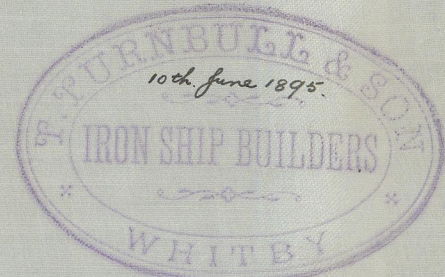 T. TURNBULL & SON
10th. June 1895.
IRON SHIP BUILDERS
WHITBY